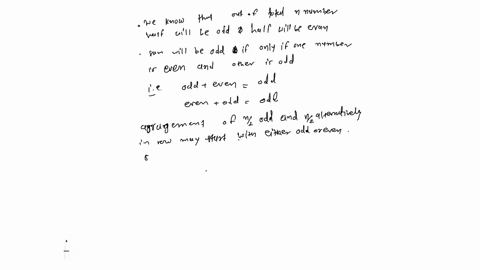 . We know that out of total n number
half will be odd & half will be even
. sum will be odd if only if one number
is even and other is odd
i.e odd + even = odd
even + odd = odd
arrangement of n/2 odd and n/2 alternatively
in row may start with either odd or even.